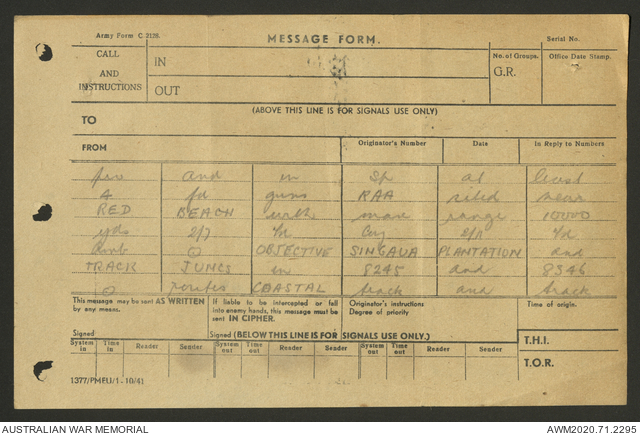 Army Form C 2128.
MESSAGE FORM.
Serial No.
CALL AND INSTRUCTIONS
IN
OUT
No. of Groups.
G.R.
Office Date Stamp.
(ABOVE THIS LINE IS FOR SIGNALS USE ONLY)
TO
FROM
Originator's Number
Date
In Reply to Numbers
and in sp at least
4 fd guns RAA sited near
RED BEACH with max range 10000
yds 2/7 Fd Coy 2/11 Fd
Amb Q OBJECTIVE SINGAUA PLANTATION and
TRACK JUNCS in 8245 and 8346
Q routes COASTAL track and track
This message may be sent AS WRITTEN by any means.
If liable to be intercepted or fall into enemy hands, this message must be sent IN CIPHER.
Originator's instructions
Degree of priority
Time of origin.
Signed
Signed
(BELOW THIS LINE IS FOR SIGNALS USE ONLY.)
T.H.I.
System in
Time in
Reader
Sender
System out
Time out
Reader
Sender
System out
Time out
Reader
Sender
T.O.R.
1377/PMEU/1-10/41
AUSTRALIAN WAR MEMORIAL
AWM2020.71.2295